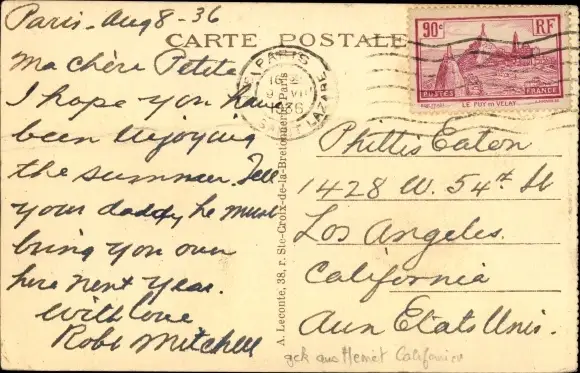 Paris - Aug 8 - 36
CARTE POSTALE
Ma chère Petite
I hope you have
been enjoying
the summer. Tell
your daddy he must
bring you over
here next year.
With love
Robt Mitchell
A. Leconte, 38, r. Ste-Croix-de-la-Bretonnerie, Paris
PARIS
1936
ST LAZARE
90c RF
POSTES FRANCE
LE PUY EN VELAY
Phillis Eaton
1428 W. 54th St
Los Angeles.
California
Aux Etats Unis.
Hemet Californien